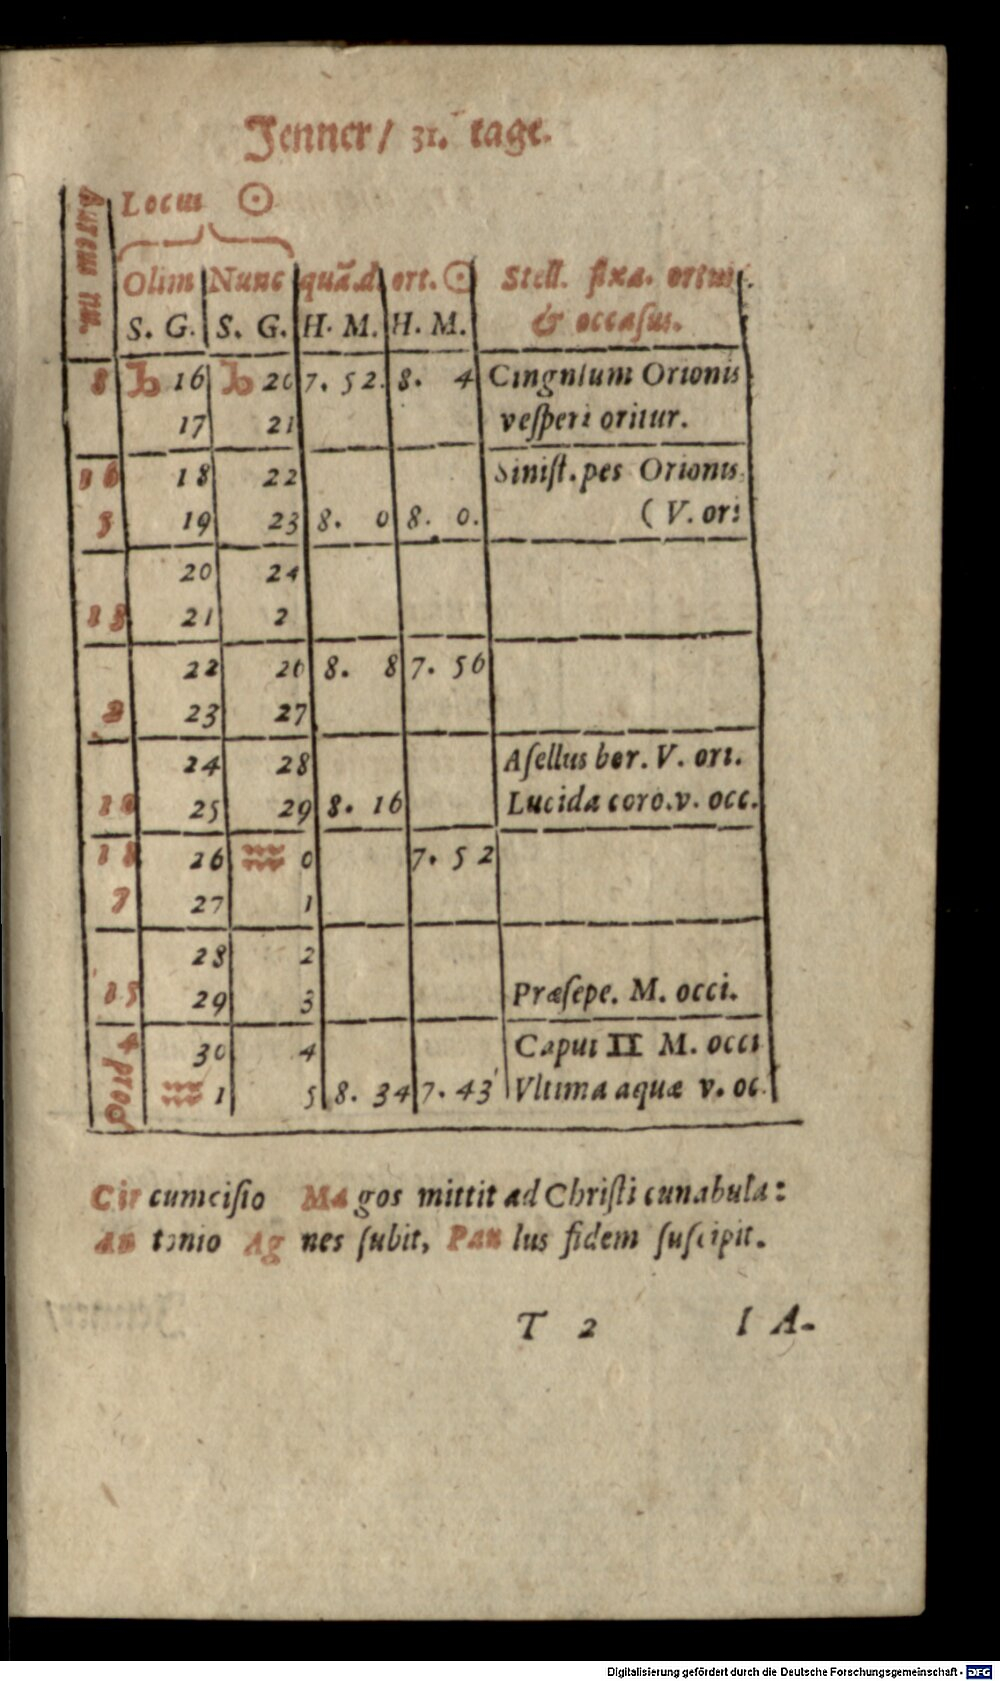 Jenner / 31. tage.
Aureus nu.
Locus ☉
Olim Nunc quã.d. ort. ☉ Stell. fixa. ortus
S. G. S. G. H. M. H. M. & occasus.
8 ♑ 16 ♑ 20 7. 52. 8. 4 Cingulum Orionis
17 21 vesperi oritur.
16 18 22 Sinist. pes Orionis
5 19 23 8. 0 8. 0. ( V. ori
20 24
13 21 2
22 26 8. 8 7. 56
2 23 27
24 28 Asellus bor. V. ort.
10 25 29 8. 16 Lucida coro. v. occ.
18 26 ♒ 0 7. 52
7 27 1
28 2
15 29 3 Præsepe. M. occi.
4 30 4 Caput II M. occi
prod ♒ 1 5 8. 34 7. 43 Vltima aquæ v. oc.
Cir cumcisio Ma gos mittit ad Christi cunabula:
An tonio Ag nes subit, Pau lus fidem suscipit.
T 2 I A-
Digitalisierung gefördert durch die Deutsche Forschungsgemeinschaft - DFG